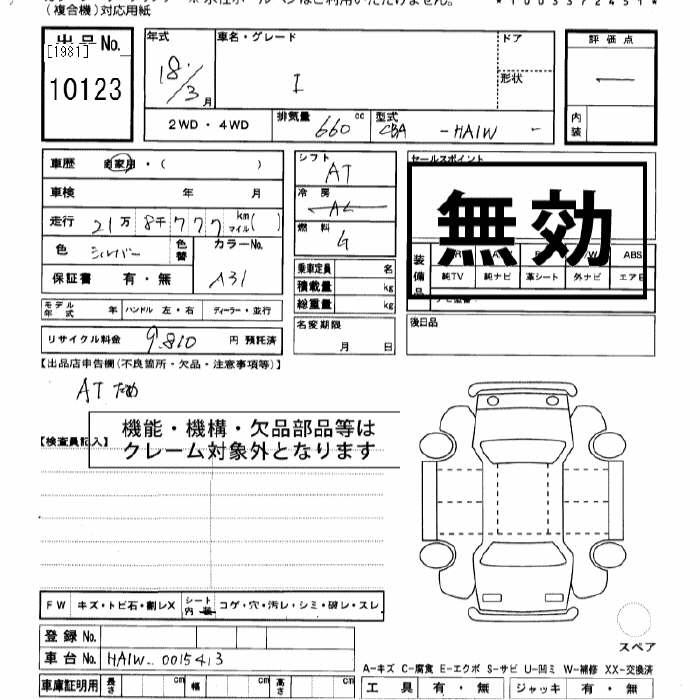 (複合機)対応用紙
*1003372451*
出品No.
[1981]
10123
年式
18/3月
車名・グレード
I
ドア
形状
評価点
内装
2WD・4WD
排気量
660cc
型式
CBA - HA1W -
車歴 自家用・( )
車検 年 月
走行 21万8千777 km マイル( )
色 シルバー
色替
カラーNo.
A31
保証書 有・無
モデル年式 年
ハンドル 左・右
ディーラー・並行
リサイクル料金 9,810 円 預託済
シフト
AT
冷房
AC
燃料
G
乗車定員 名
積載量 kg
総重量 kg
名変期限
月 日
セールスポイント
無効
装備品
ABS
純TV 純ナビ 革シート 外ナビ エアB
後日品
【出品店申告欄(不良箇所・欠品・注意事項等)】
ATだめ
機能・機構・欠品部品等は
クレーム対象外となります
【検査員記入】
FW キズ・トビ石・割レX
シート内装 コゲ・穴・汚レ・シミ・破レ・スレ
登録No.
車台No. HA1W-0015413
車庫証明用 長さ cm 幅 cm 高さ cm
スペア
A−キズ C−腐食 E−エクボ S−サビ U−凹ミ W−補修 XX−交換済
工具 有・無 ジャッキ 有・無